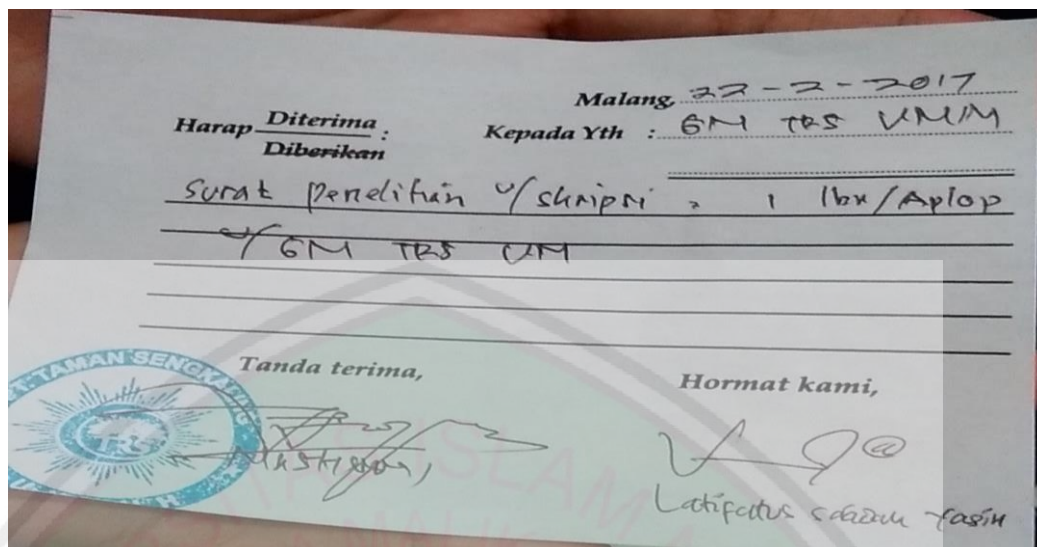 Malang, 22-2-2017
Harap Diterima :
Diberikan
Kepada Yth : GM TRS UMM
Surat Penelitian u/ skripsi = 1 lbr/Aplop
u/ GM TRS UM
Tanda terima,
Hormat kami,
PT. TAMAN SENGKALING
TRS
Latifatus Yasin
ISLAM